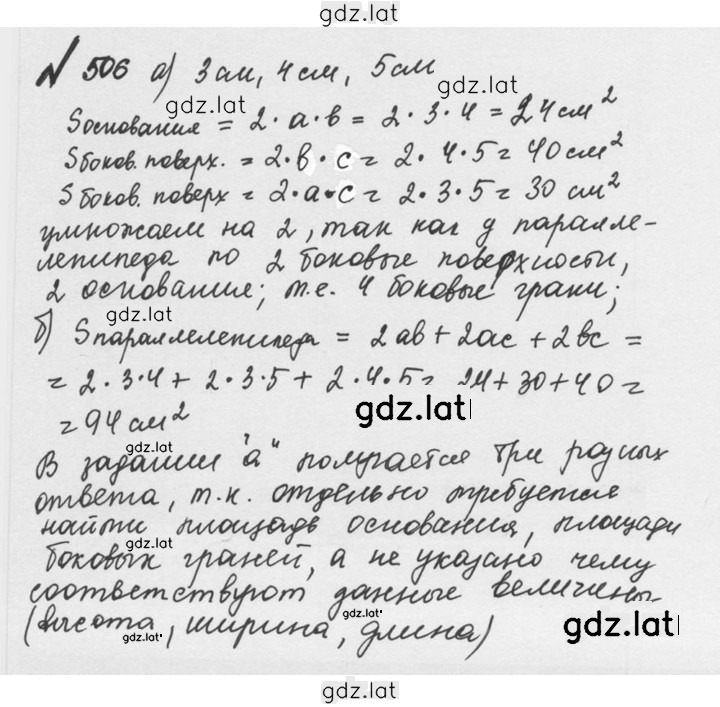 gdz.lat
№ 506 а) 3 см, 4 см, 5 см
gdz.lat gdz.lat
Sоснования = 2 · a · b = 2 · 3 · 4 = 24 см²
Sбоков. поверх. = 2 · b · c = 2 · 4 · 5 = 40 см²
S боков. поверх = 2 · a · c = 2 · 3 · 5 = 30 см²
умножаем на 2, так как у паралле-
лепипеда по 2 боковые поверхности,
2 основание; т.е. 4 боковые грани;
gdz.lat
б) Sпараллелепипеда = 2ab + 2ac + 2bc =
= 2 · 3 · 4 + 2 · 3 · 5 + 2 · 4 · 5 = 24 + 30 + 40 =
= 94 см²
gdz.lat
gdz.lat
В задании "а" получается три разных
ответа, т.к. отдельно требуется
найти площадь основания, площади
gdz.lat
боковых граней, а не указано чему
соответствуют данные величины
(высота, ширина, длина)
gdz.lat gdz.lat gdz.lat
gdz.lat